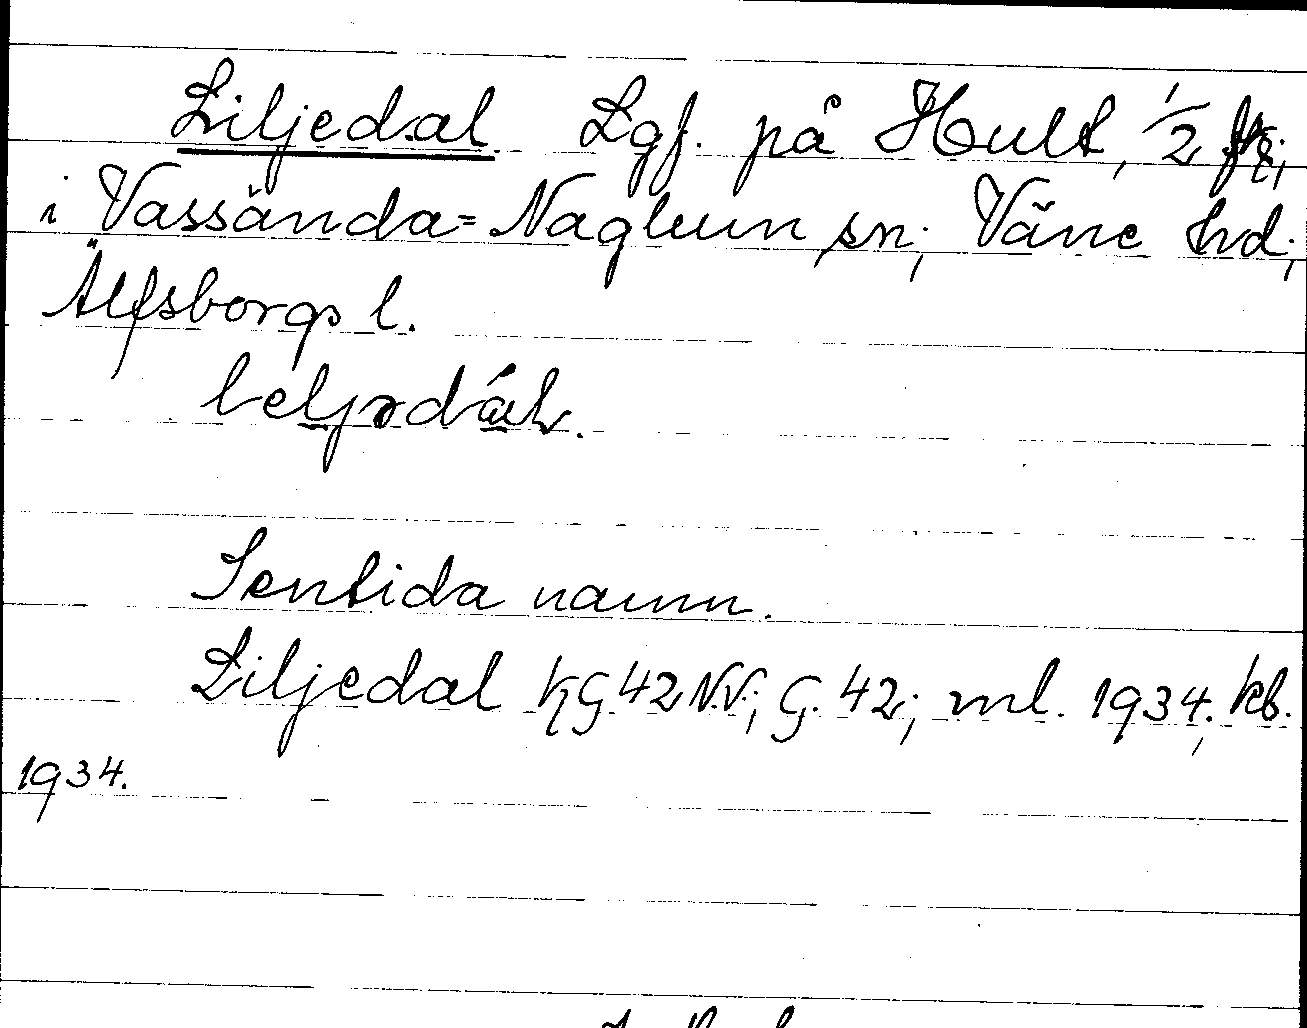 Liljedal. Lgf. på Hult, 1/2
i Vassända=Naglum sn; Väne hd;
Älfsborgs l.
Sentida namn.
Liljedal KG42NV; G. 42; ml. 1934; kb.
1934.